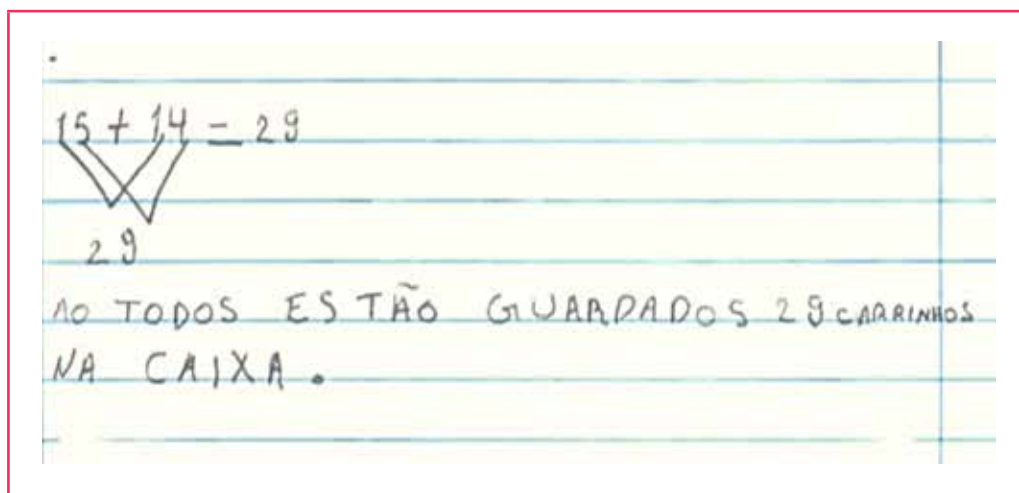 15 + 14 = 29
29
AO TODOS ESTÃO GUARDADOS 29 CARRINHOS
NA CAIXA.